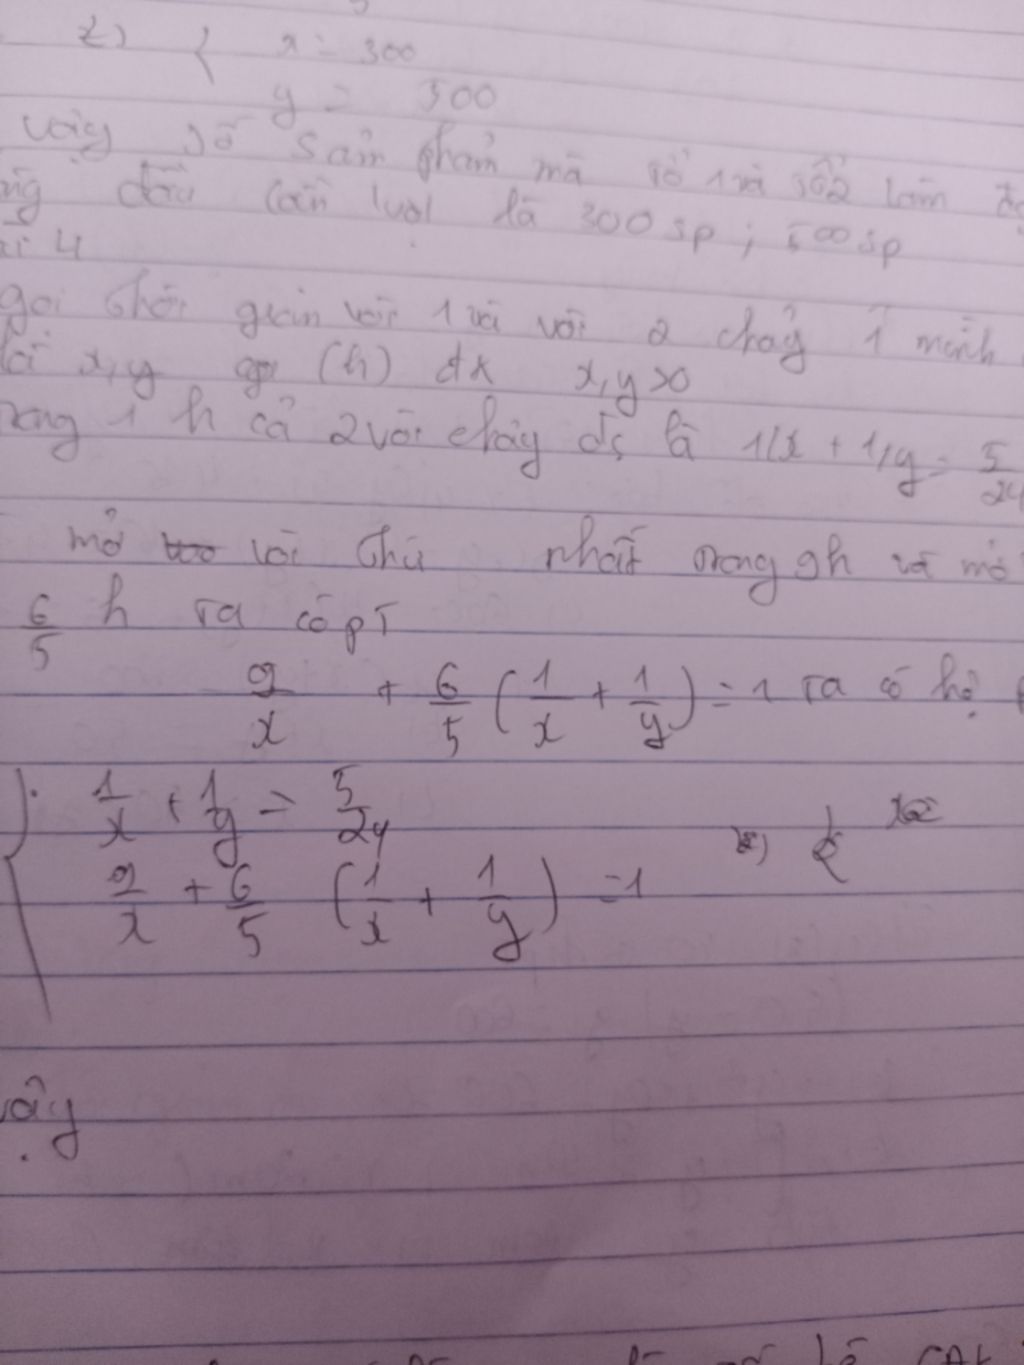 => { x = 300
y = 500
vậy số sản phẩm mà tổ 1 và tổ 2 làm
đầu lần lượt là 300 sp ; 500 sp
4
gọi thời gian vòi 1 và vòi 2 chảy 1 mình
là x,y (h) đk x,y >0
trong 1 h cả 2 vòi chảy đc là 1/x + 1/y = 5/24
mở vòi thứ nhất trong 9h và mở
6/5 h ta có pt
9/x + 6/5 (1/x + 1/y) = 1 ta có hệ
{ 1/x + 1/y = 5/24
9/x + 6/5 (1/x + 1/y) = 1
vậy